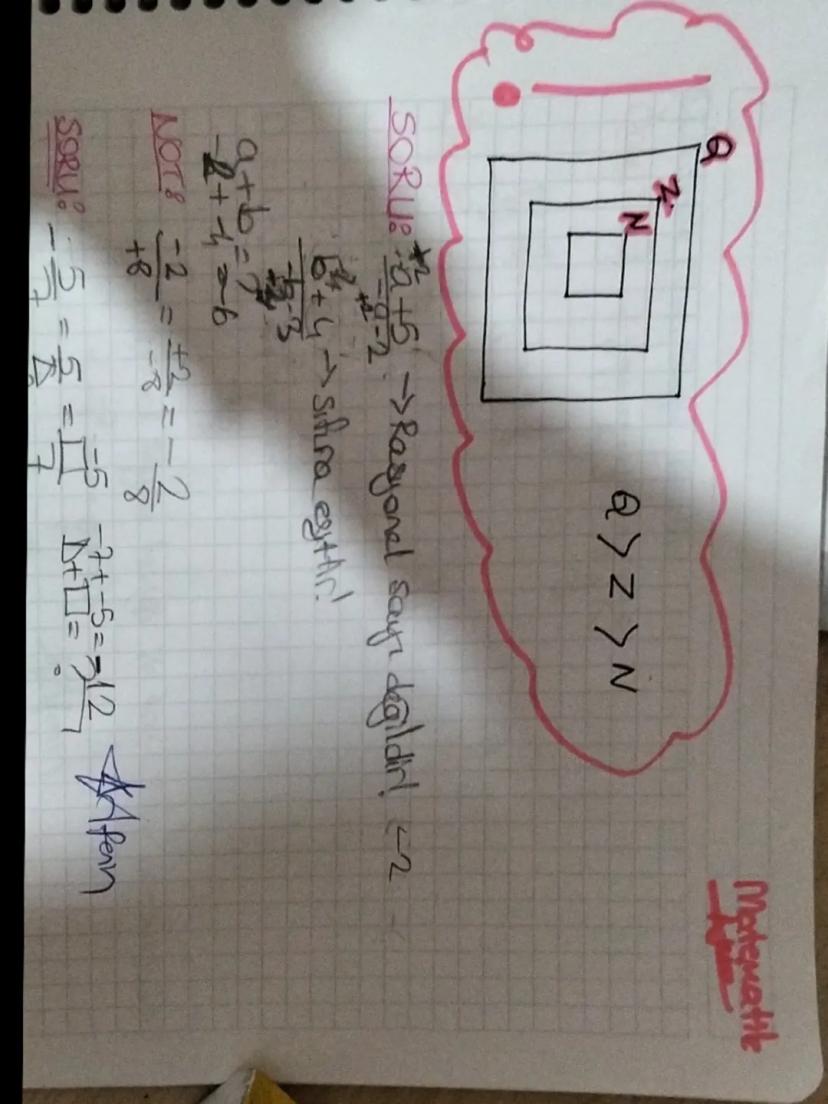 Matematik
Q
Z
N
Q > Z > N
SORU: a+5 / -a-2 → Rasyonel sayı değildir! -2
b+4 / -b-3 → sıfıra eşittir!
a+b=?
-2+-4=-6
NOT: -2/+8 = +2/-8 = -2/8
SORU: -5/7 = 5/Δ = □/7 Δ+□=?
-7+-5=-12
Aferin